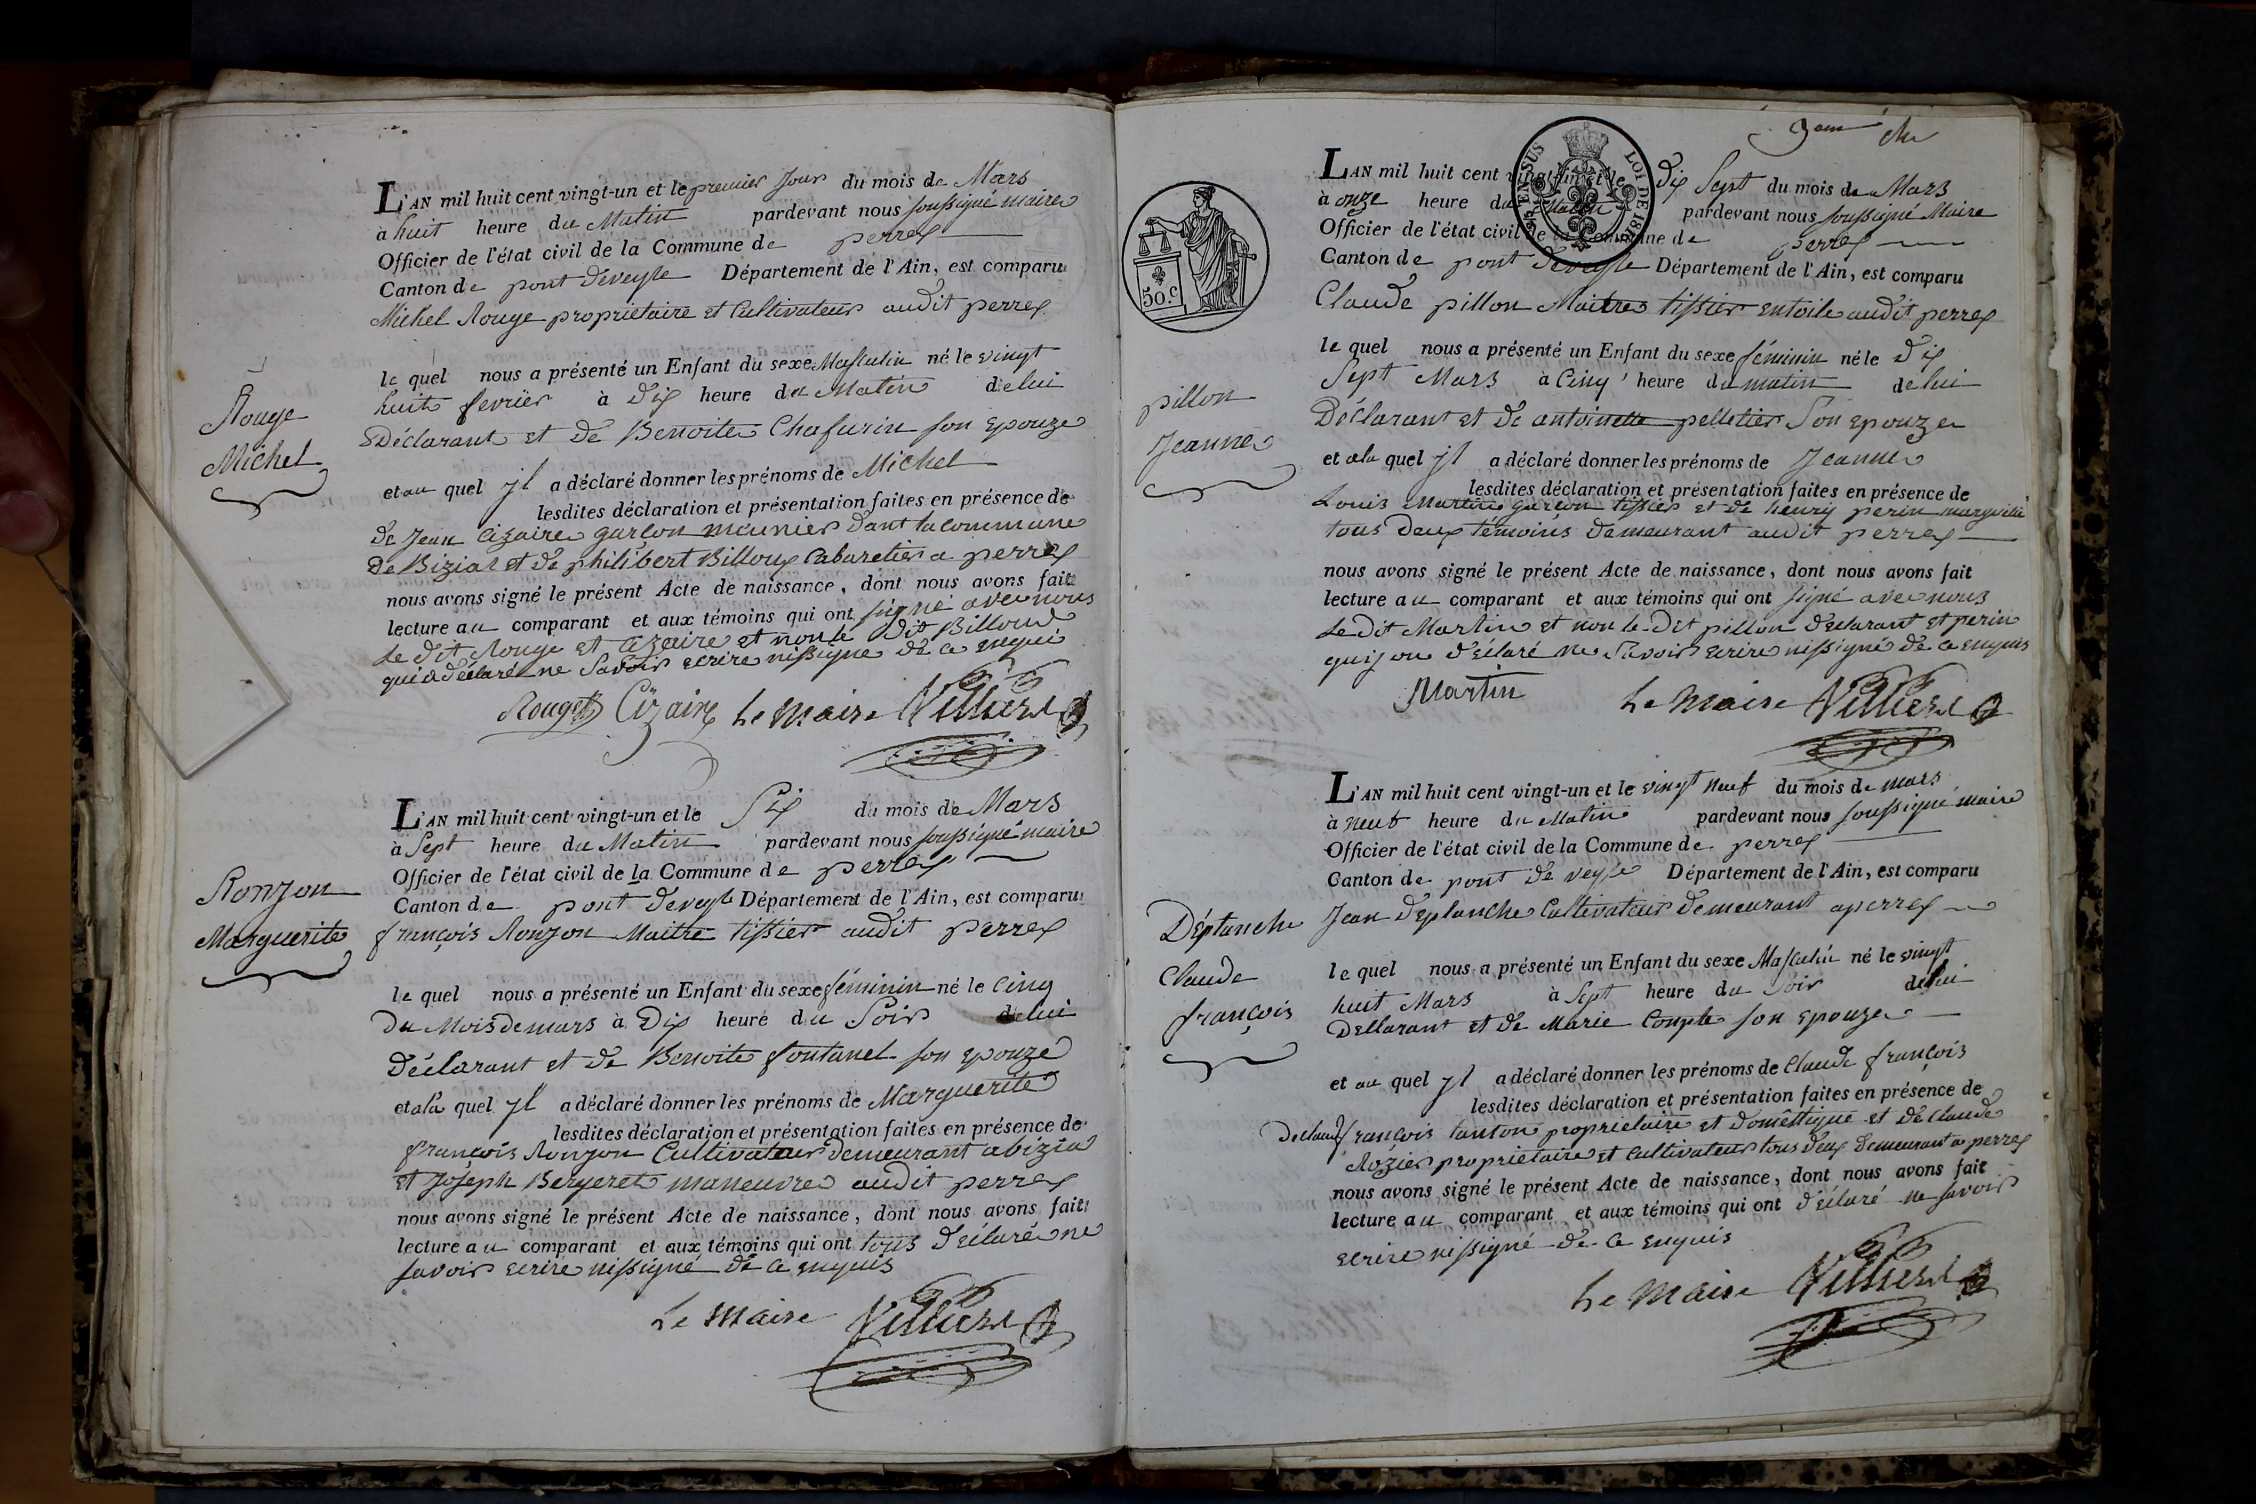 L'AN mil huit cent vingt-un et le premier Jour du mois de Mars
à huit heure du Matin pardevant nous soussigné maire
Officier de l'état civil de la Commune de perrex
Canton de pont deveyle Département de l'Ain, est comparu
Michel Rouge proprietaire et Cultivateur audit perrex
le quel nous a présenté un Enfant du sexe Masculin né le vingt
huit fevrier à dix heure du Matin de lui
Rouge
Michel
Déclarant et de Benoite Chafurin son epouze
et au quel yl a déclaré donner les prénoms de Michel
lesdites déclaration et présentation faites en présence de
de Jean Cizaire garçon meunier dant la commune
de Biziat et de philibert Billoux Cabaretier a perrex
nous avons signé le présent Acte de naissance, dont nous avons fait
lecture au comparant et aux témoins qui ont signé avec nous
le dit Rouge et Cizaire et non le dit Billoud
qui a déclaré ne Savoir ecrire ni signe de ce enqui
Rouge Cizaire Le Maire Villierd
L'AN mil huit cent vingt-un et le Six du mois de Mars
à Sept heure du Matin pardevant nous soussigné maire
Officier de l'état civil de la Commune de perrex
Canton de pont deveyle Département de l'Ain, est comparu
Ronjon
Marguerite
françois Ronjon Maitre tissier audit perrex
le quel nous a présenté un Enfant du sexe féminin né le Cinq
du Mois de mars à Dix heure du Soir de lui
Déclarant et de Benoite fontanel son epouze
et a la quel yl a déclaré donner les prénoms de Marguerite
lesdites déclaration et présentation faites en présence de
françois Ronjon Cultivateur demeurant a bizia
et Joseph Bergeret maneuvre audit perrex
nous avons signé le présent Acte de naissance, dont nous avons fait
lecture au comparant et aux témoins qui ont tous déclaré ne
savoir ecrire ni signé de ce enquis
Le Maire Villierd
LOI DE
50.c
L'AN mil huit cent vingt-un et le dix Sept du mois de Mars
à onze heure du Matin pardevant nous soussigné Maire
Officier de l'état civil de la Commune de perrex
Canton de pont deveyle Département de l'Ain, est comparu
Claude pillon Maitre tissier entoile audit perrex
le quel nous a présenté un Enfant du sexe féminin né le dix
Sept Mars à Cinq heure du matin de lui
pillon
Jeanne
Déclarant et de antoinette pelletier Son epouze
et ala quel yl a déclaré donner les prénoms de Jeanne
lesdites déclaration et présentation faites en présence de
Louis Martin garçon tissier et de henry perin
tous deux témoins demeurant audit perrex
nous avons signé le présent Acte de naissance, dont nous avons fait
lecture au comparant et aux témoins qui ont signé avec nous
le dit Martin et non le dit pillon déclarant et perin
qui on déclaré ne Savoir ecrire ni signé de ce enquis
Martin Le Maire Villierd
L'AN mil huit cent vingt-un et le vingt neuf du mois de mars
à neuf heure du Matin pardevant nous soussigné maire
Officier de l'état civil de la Commune de perrex
Canton de pont de veyle Département de l'Ain, est comparu
Déplanche
Claude
françois
Jean déplanche Cultivateur demeurant a perrex
le quel nous a présenté un Enfant du sexe Masculin né le vingt
huit Mars à Sept heure du Soir de lui
Déclarant et de Marie Comple son epouze
et au quel yl a déclaré donner les prénoms de Claude françois
lesdites déclaration et présentation faites en présence de
françois tanton proprietaire et domêttique et de Claude
Rozier proprietaire et Cultivateur tous deux demeurant a perrex
nous avons signé le présent Acte de naissance, dont nous avons fait
lecture au comparant et aux témoins qui ont déclaré ne savoir
ecrire ni signé de ce enquis
Le Maire Villierd